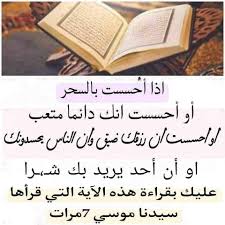 اذا أحسست بالسحر
أو أحسست انك دائما متعب
او احسست ان رزقك ضيق وان الناس يحسدونك
او أن أحد يريد بك شهرا
عليك بقراءة هذه الآية التي قرأها
سيدنا موسي 7مرات